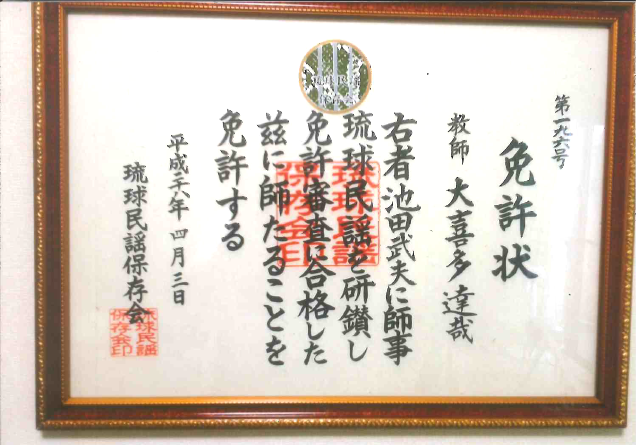 第一九六号
免許状
教師 大喜多 達哉
右者池田武夫に師事
琉球民謡を研鑚し
免許審査に合格した
茲に師たることを
免許する
平成二六年 四月三日
琉球民謡保存会
琉球民謡
保存会印
琉球民謡
保存会印